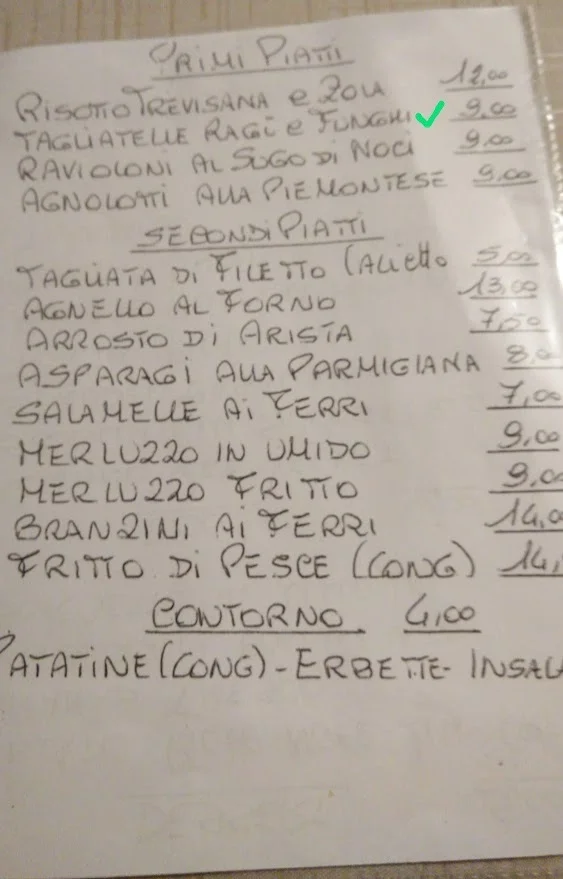 PRIMI PIATTI
RISOTTO TREVISANA e ZOLA 12,00
TAGLIATELLE RAGÙ e FUNGHI 9,00
RAVIOLONI AL SUGO DI NOCI 9.00
AGNOLOTTI ALLA PIEMONTESE 9,00
SECONDI PIATTI
TAGLIATA DI FILETTO (ALLETTO 5,00
AGNELLO AL FORNO 13,00
ARROSTO DI ARISTA 7,50
ASPARAGI ALLA PARMIGIANA 8,0
SALAMELLE AI FERRI 7,00
MERLUZZO IN UMIDO 9,00
MERLUZZO FRITTO 9,0
BRANZINI AI FERRI 14,0
FRITTO DI PESCE (CONG) 14,
CONTORNO 4,00
PATATINE (CONG) - ERBETTE - INSAL